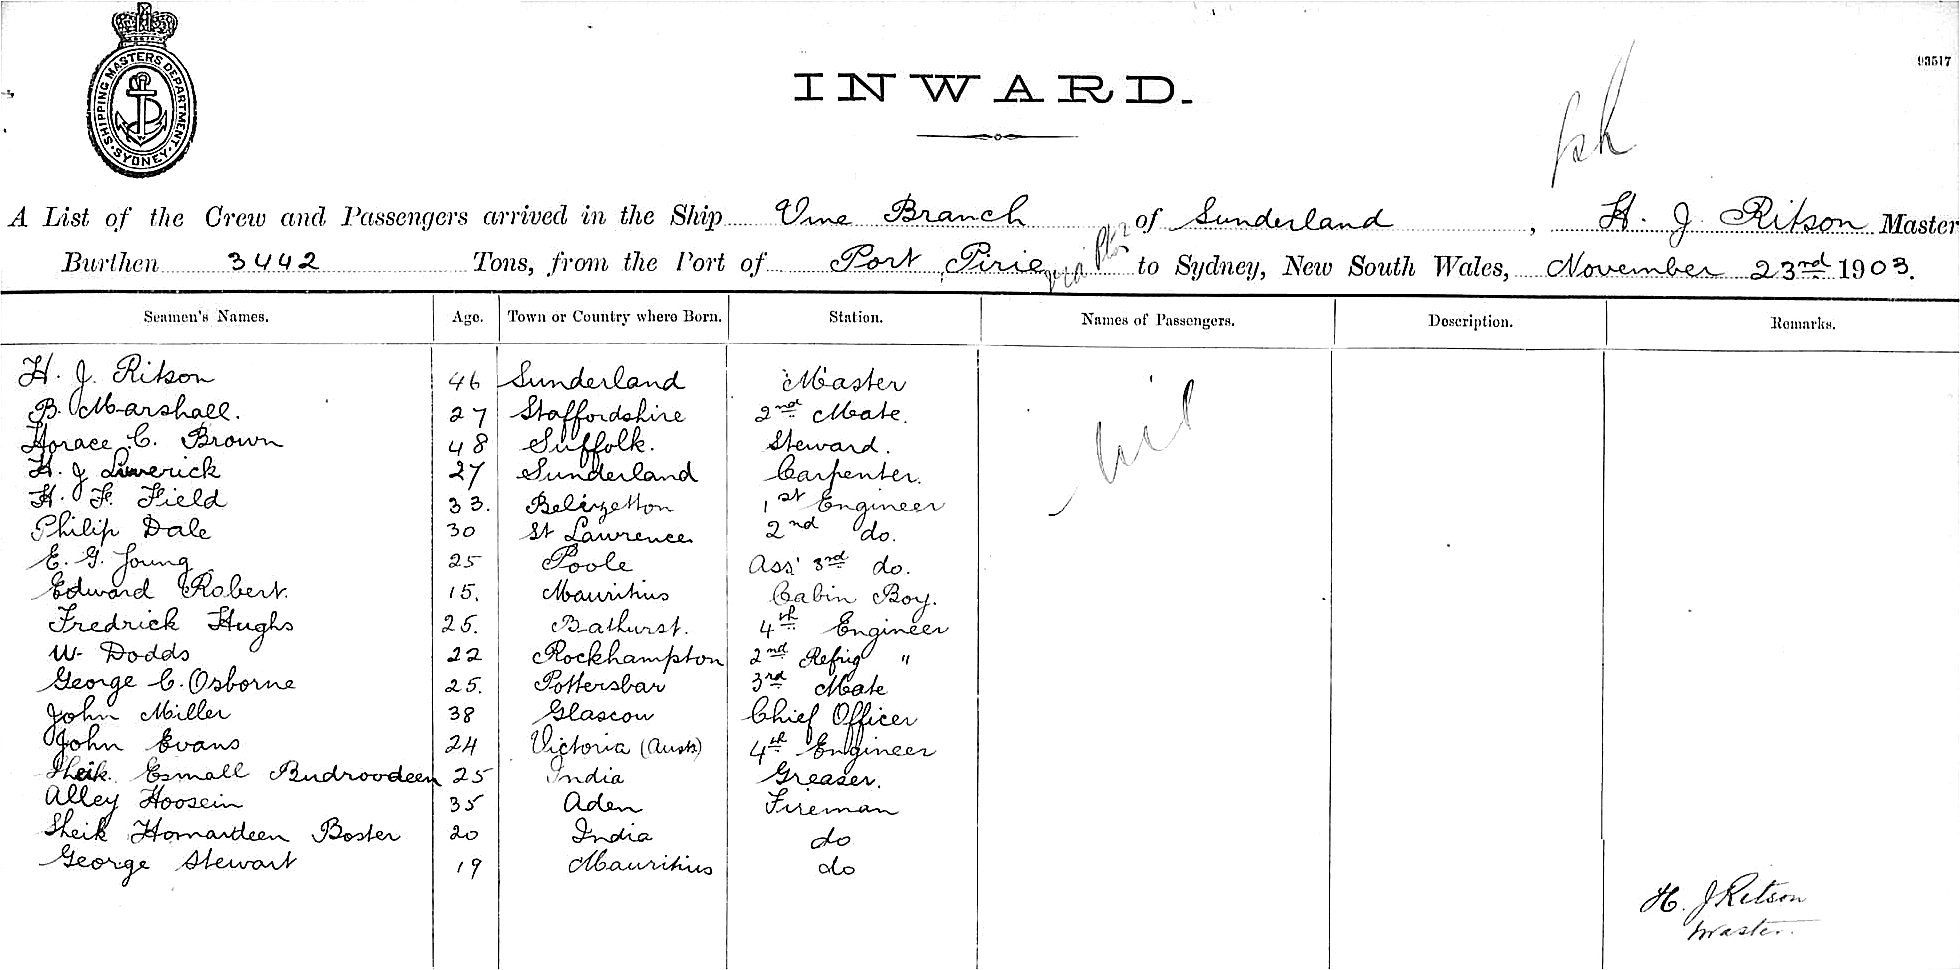 SHIPPING MASTERS DEPARTMENT.
SYDNEY
93517
INWARD.
A List of the Crew and Passengers arrived in the Ship Vine Branch of Sunderland, H. J. Ritson Master
Burthen 3442 Tons, from the Port of Port Pirie to Sydney, New South Wales, November 23rd 1903.
Seamen's Names. Age. Town or Country where Born. Station. Names of Passengers. Description. Remarks.
H. J. Ritson 46 Sunderland Master
B. Marshall. 27 Staffordshire 2nd Mate.
Horace C. Brown 48 Suffolk. Steward.
H. J Limerick 27 Sunderland Carpenter.
H. F. Field 33. 1st Engineer
Philip Dale 30 St Lawrence 2nd do.
E. G. Young 25 Poole Ass' 3rd do.
Edward Robert. 15. Mauritius Cabin Boy.
Fredrick Hughs 25. Bathurst. 4th Engineer
W. Dodds 22 Rockhampton 2nd Refrig "
George C. Osborne 25. Pottersbar 3rd Mate
John Miller 38 Glascow Chief Officer
John Evans 24 Victoria (Aust) 4th Engineer
Sheik Esmall Budroodeen 25 India Greaser.
Alley Hoosein 35 Aden Fireman
Sheik Homardeen Boster 20 India do
George Stewart 19 Mauritius do
nil
H. J Ritson
Master.